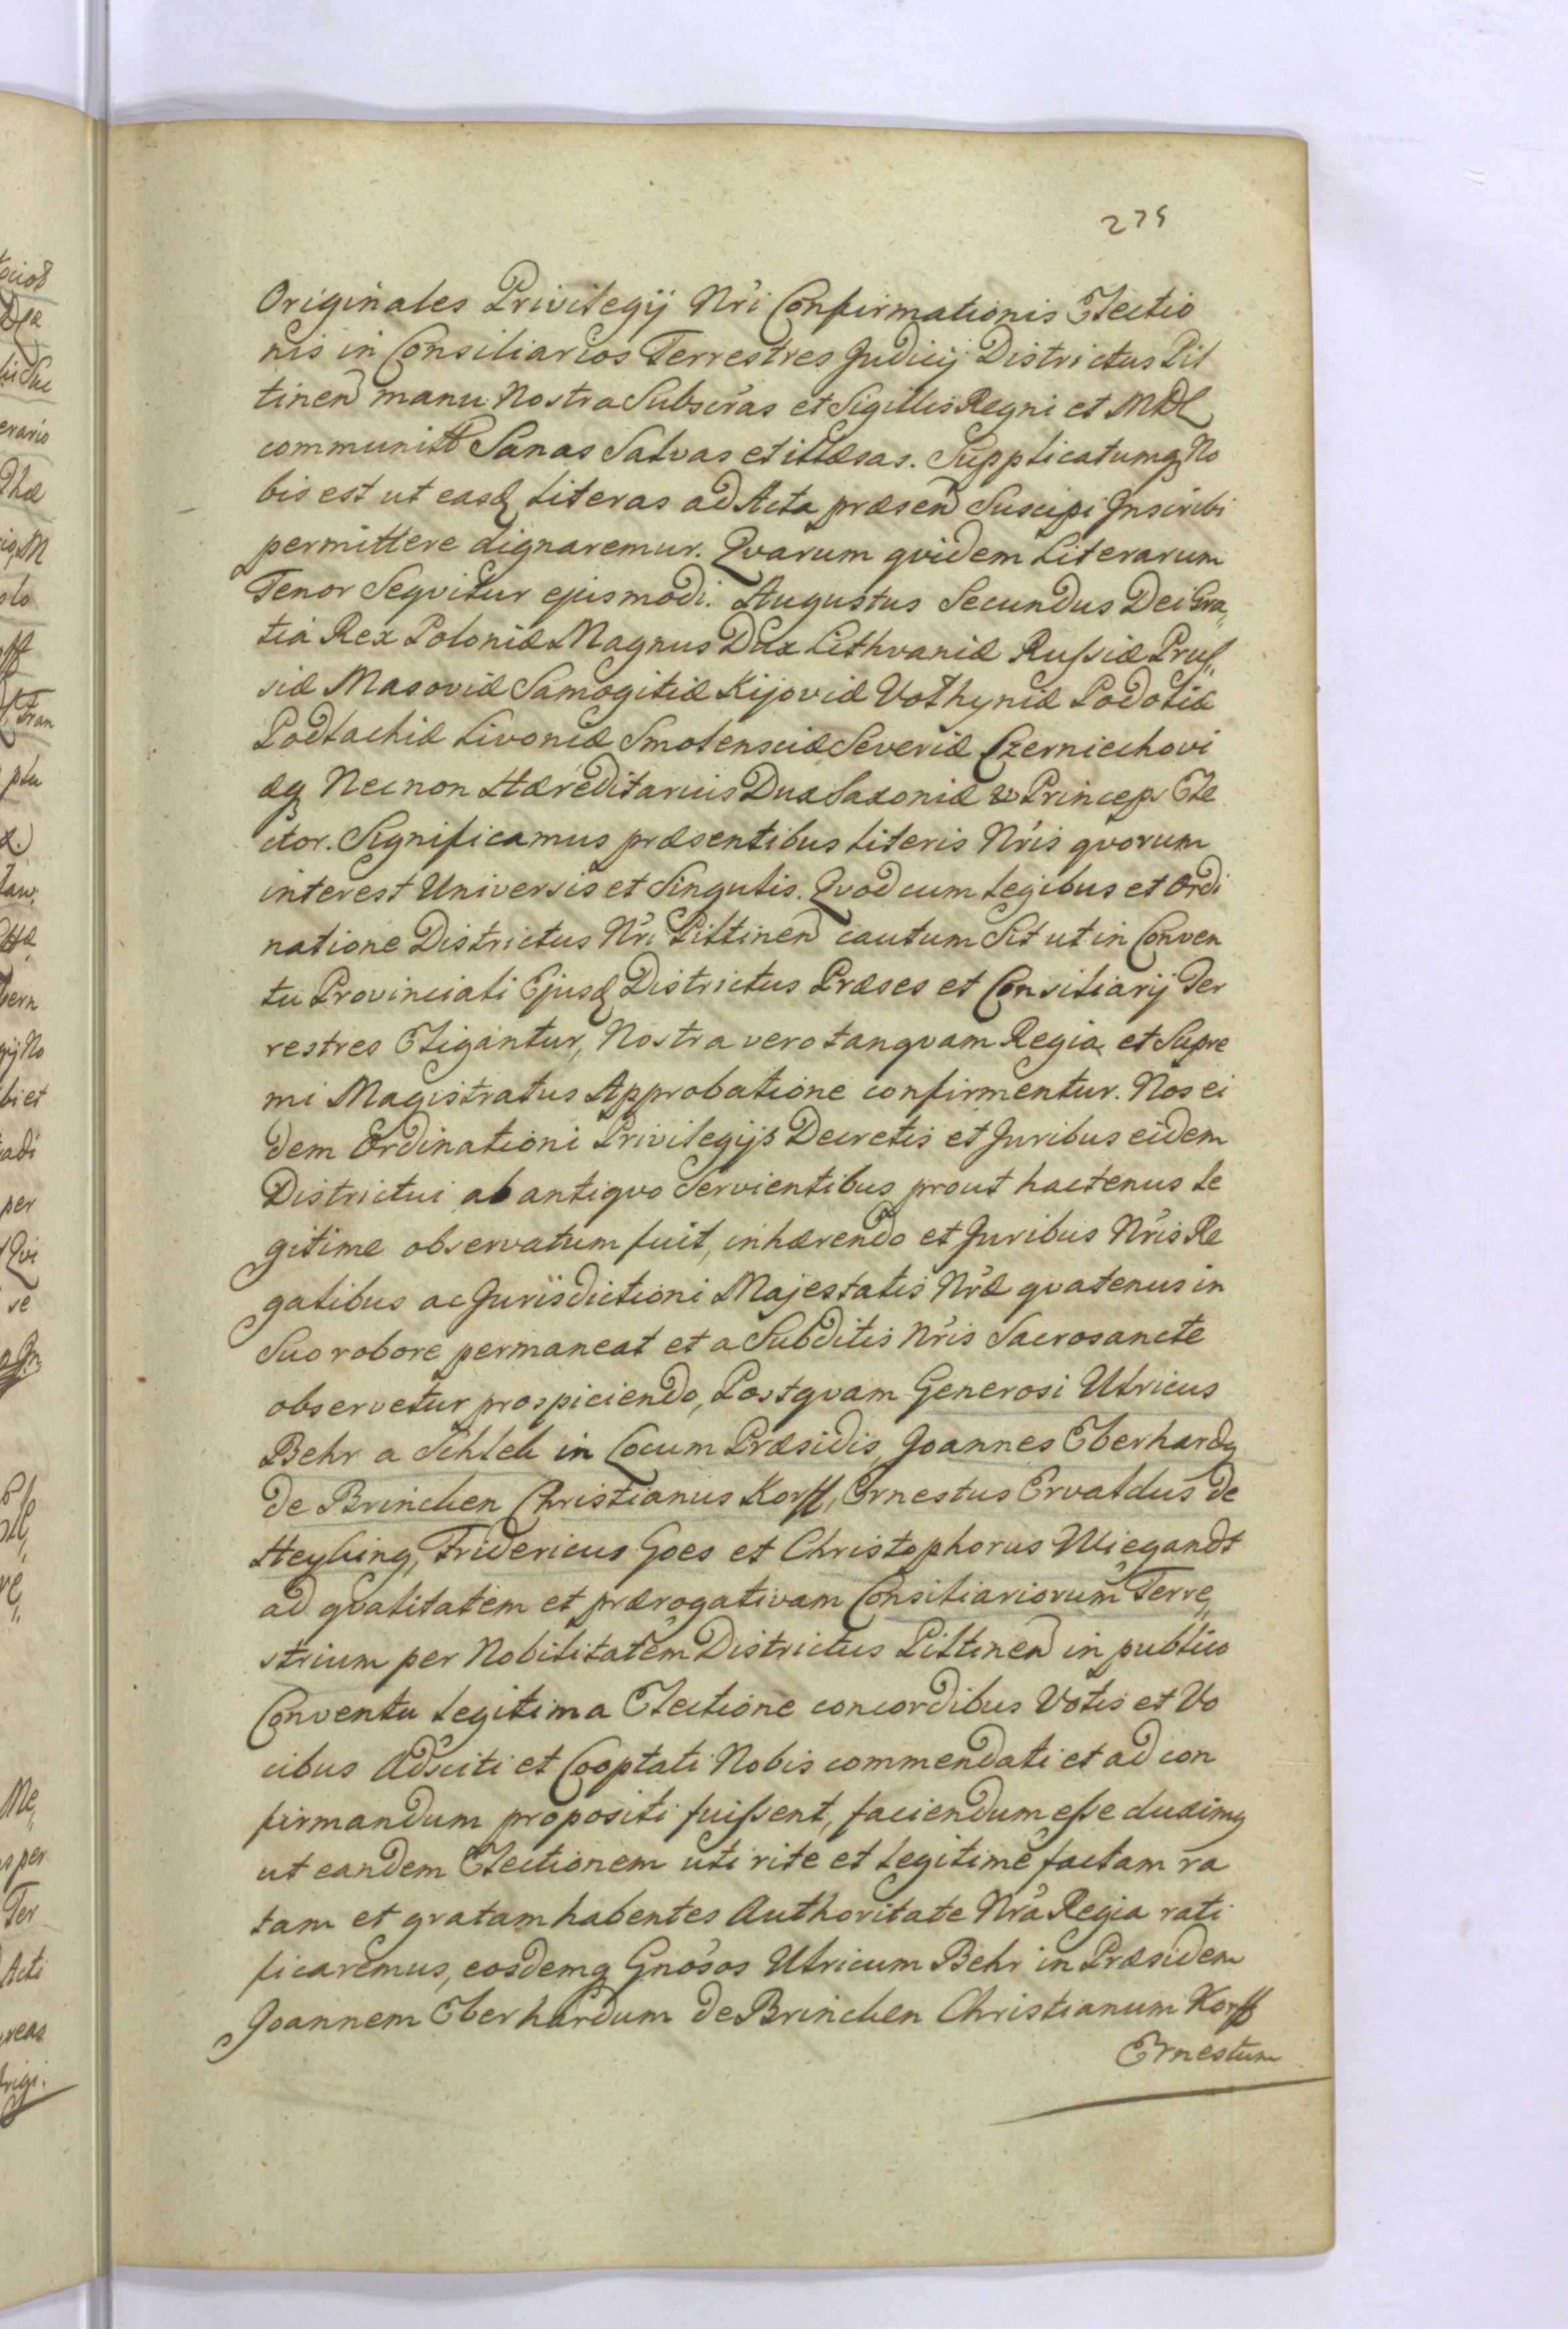 275
Originales Privilegij Nr̃i Confirmationis Electio
nis in Consiliarios Terrestres Judicij Districtus Pil
tinen manu Nostra Subscr̃as et Sigillis Regni et MDL
communitt Sanas Salvas et illæsas. Supplicatumq No
bis est ut easd Literas ad Acta præsen Suscipi Inscribi
permittere dignaremur. Qvarum qvidem Literarum
Tenor Seqvitur ejusmodi. Augustus Secundus Dei Gra„
tia Rex Poloniæ Magnus Dux Lithvaniæ Russiæ Prus„
siæ Masoviæ Samogitiæ Kijoviæ Volhyniæ Podoliæ
Podlachiæ Livoniæ Smolensciæ Severiæ Czerniechovi
æq Necnon Hæreditarius Dux Saxoniæ & Princeps Ele
ctor. Significamus præsentibus Literis Nr̃is qvorum
interest Universis et Singulis. Qvod cum Legibus et Ordi
natione Districtus Nr̃i Piltinen cautum Sit ut in Conven
tu Provinciali Ejusd Districtus Præses et Consiliarij Ter
restres Eligantur, Nostra vero tanqvam Regia et Supre
mi Magistratus Approbatione confirmentur. Nos ei
dem Ordinationi Privilegijs Decretis et Juribus eidem
Districtui ab antiqvo Servientibus prout hactenus Le
gitime observatum fuit, inhærendo et Juribus Nr̃is Re
galibus ac Jurisdictioni Majestatis Nr̃æ qvatenus in
Suo robore permaneat et a Subditis Nr̃is Sacrosancte
observetur prospiciendo, Postqvam Generosi Ulricus
Behr a Schleck in Locum Præsidis, Joannes Eberhardq
de Brincken Christianus Korff, Ernestus Ervaldus de
Heyking, Fridericus Goes et Christophorus Wiegandt
ad qvalitatem et prærogativam Consiliariorum Terre„
strium per Nobilitatem Districtus Piltinen in publico
Conventu Legitima Electione concordibus Votis et Vo
cibus Adsciti et Cooptati Nobis commendati et ad con
firmandum propositi fuissent, faciendum esse duximq
ut eandem Electionem uti rite et Legitime factam ra
tam et gratam habentes Authoritate Nr̃a Regia rati
ficaremus, eosdemq Gnõsos Ulricum Behr in Præsidem
Joannem Eberhardum de Brincken Christianum Korff
Ernestum